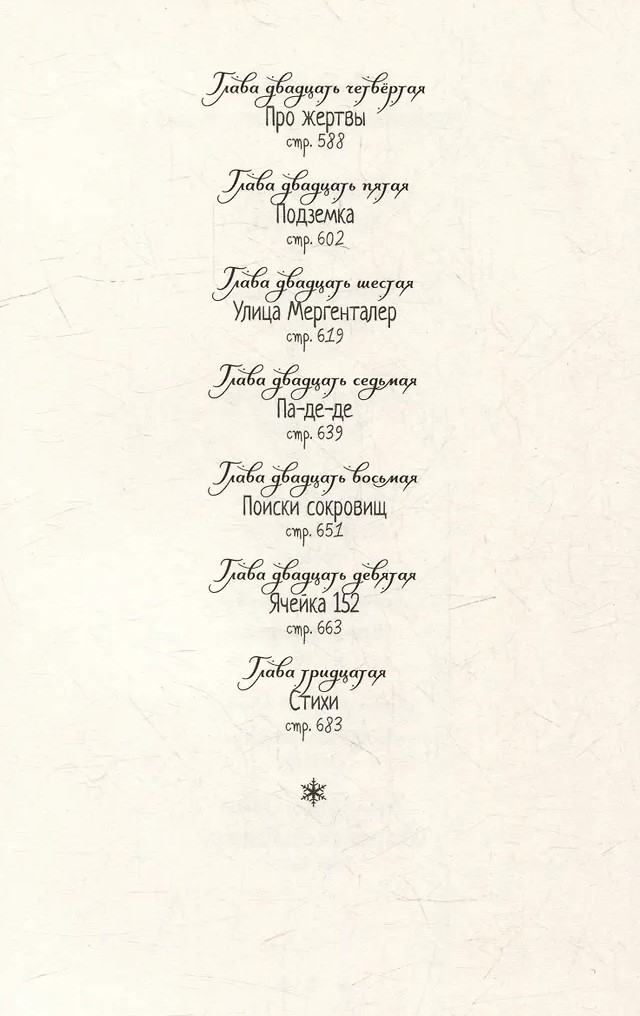 Глава двадцать четвёртая
Про жертвы
стр. 588
Глава двадцать пятая
Подземка
стр. 602
Глава двадцать шестая
Улица Мергенталер
стр. 619
Глава двадцать седьмая
Па-де-де
стр. 639
Глава двадцать восьмая
Поиски сокровищ
стр. 651
Глава двадцать девятая
Ячейка 152
стр. 663
Глава тридцатая
Стихи
стр. 683